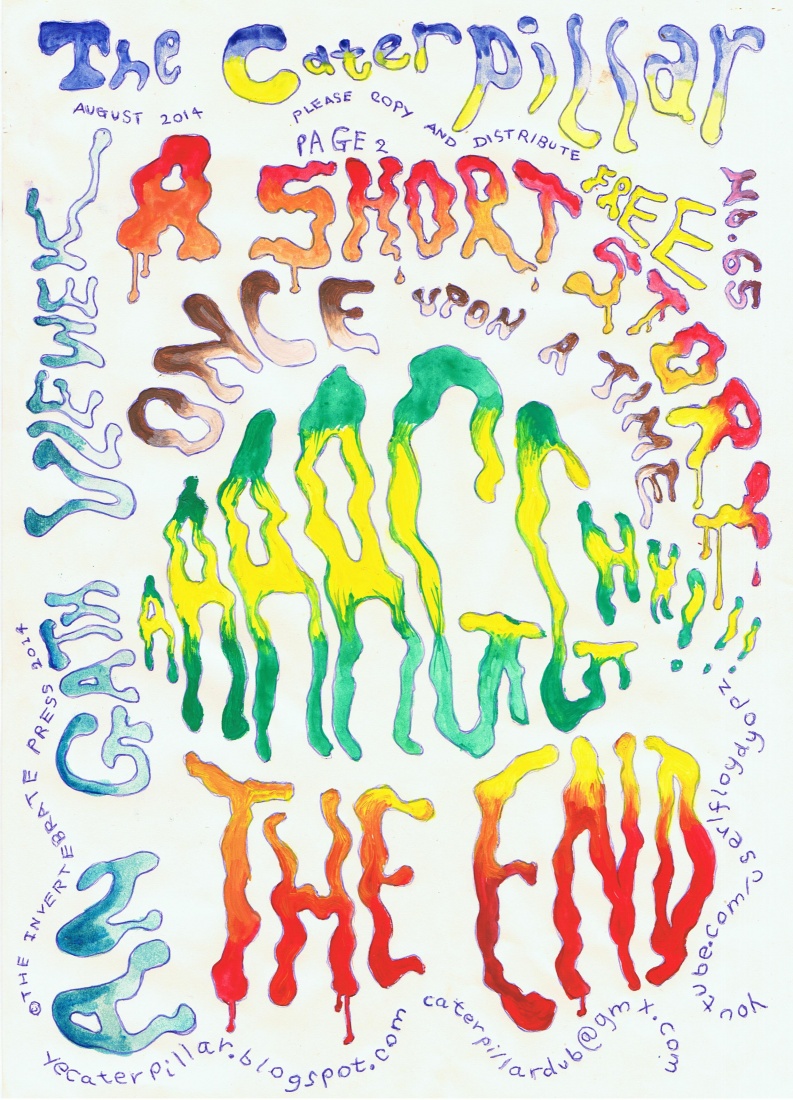 The Caterpillar
AUGUST 2014
PLEASE COPY AND DISTRIBUTE
PAGE 2
FREE
No. 65
A SHORT STORY
ONCE UPON A TIME
AAAAGGHH!!!
THE END
AN GATH VLEWEK
©THE INVERTEBRATE PRESS 2014
yecaterpillar.blogspot.com
caterpillardub@gmx.com
youtube.com/user/floydyopz